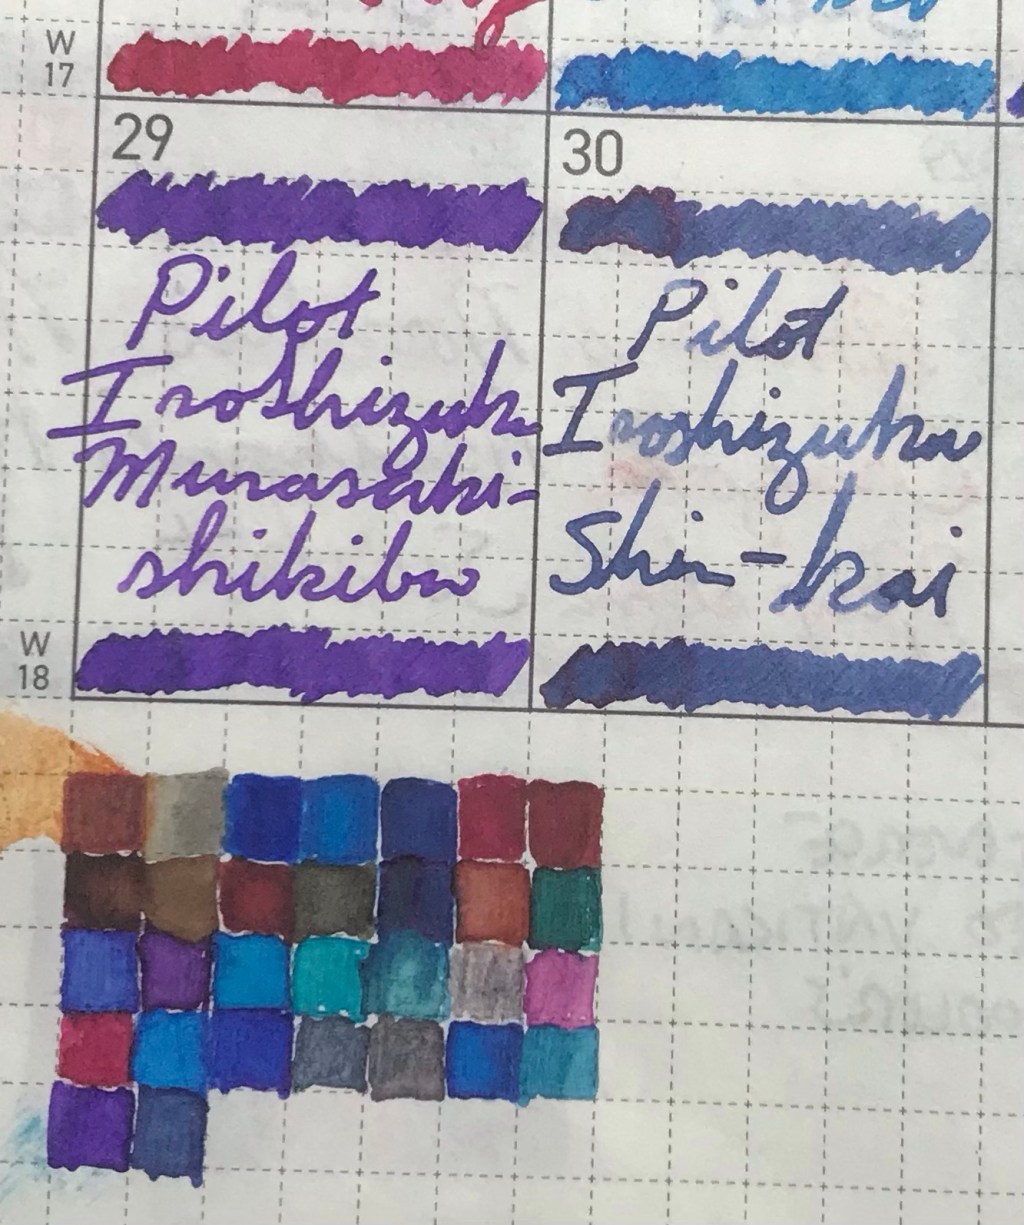 W
17
29
30
Pilot
Iroshizuku
Murasaki-
shikibu
Pilot
Iroshizuku
Shin-kai
W
18